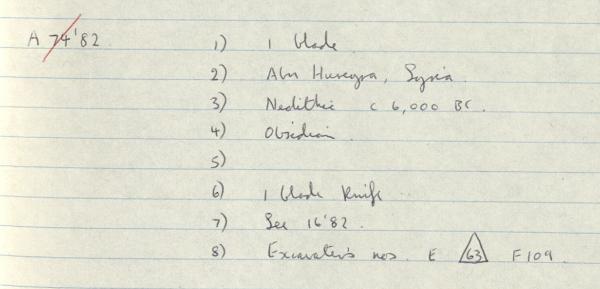 A 74'82 1) 1 blade
2) Abu Hureyra, Syria
3) Neolithic c 6,000 BC.
4) Obsidian
5)
6) 1 blade knife
7) See 16'82.
8) Excavator's nos. E 63 F109